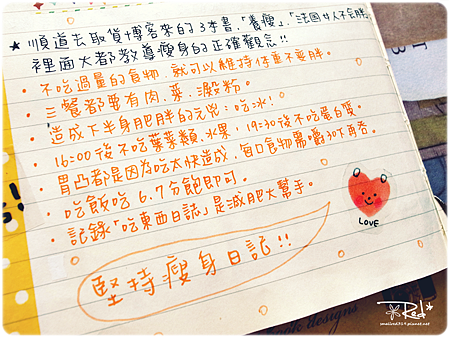 ★順道去取貨博客來的3本書,「養瘦」、「法國女人不會胖」
裡面大都教導瘦身的正確觀念!!
·不吃過量的食物,就可以維持体重不變胖。
·三餐都要有肉、菜、澱粉。
·造成下半身肥胖的元兇:吃冰!
·16:00後不吃葉菜類、水果,19:30後不吃蛋白質。
·胃凸都是因為吃太快造成,每口食物需嚼30下再吞。
·吃飯吃6.7分飽即可。
·記錄「吃東西日誌」是減肥大幫手。
LOVE
堅持瘦身日記!!
Red
smallred319.pixnet.net
designs